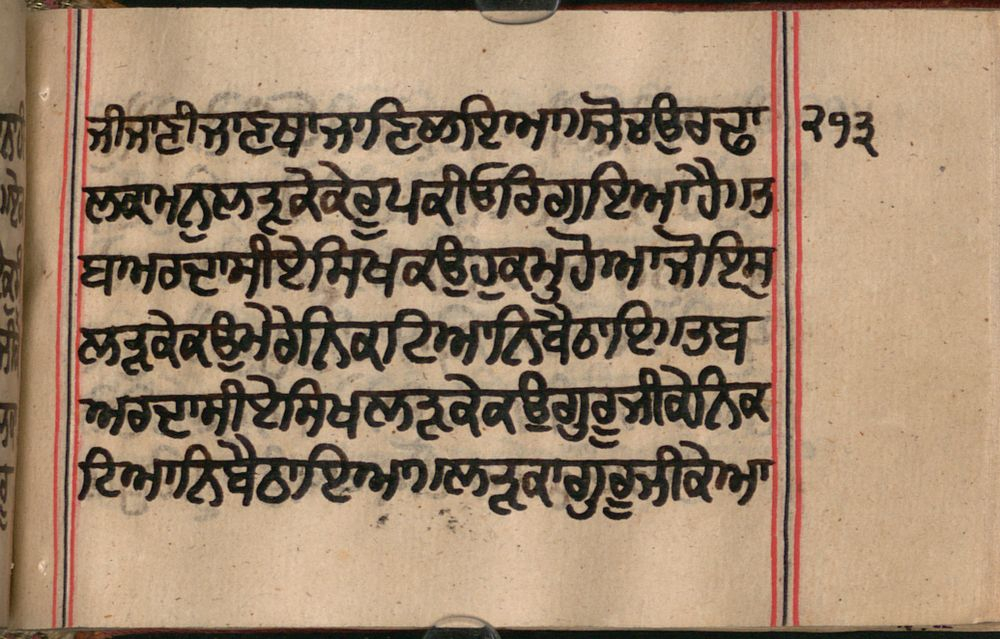 ਜੀਜਾਣੀਜਾਣਬਾਜਾਣਿਲਇਆ॥ਜੋਚਉਰਢਾ ੨੧੩
ਲਕਾਮਨੁਲੜਕੇਕੇਰੂਪਕੀਓਰਿਗਇਆਹੈ॥ਤ
ਬਅਰਦਾਸੀਏਸਿਖਕਉਹੁਕਮੁਹੋਆਜੋਇਸੁ
ਲੜਕੇਕਉਮੇਰੇਨਿਕਟਿਆਨਿਬੈਠਾਇ॥ਤਬ
ਅਰਦਾਸੀਏਸਿਖਲੜਕੇਕਉਗੁਰੂਜੀਕੇਨਿਕ
ਟਿਆਨਿਬੈਠਾਇਆ॥ਲੜਕਾਗੁਰੂਜੀਕੇਆ